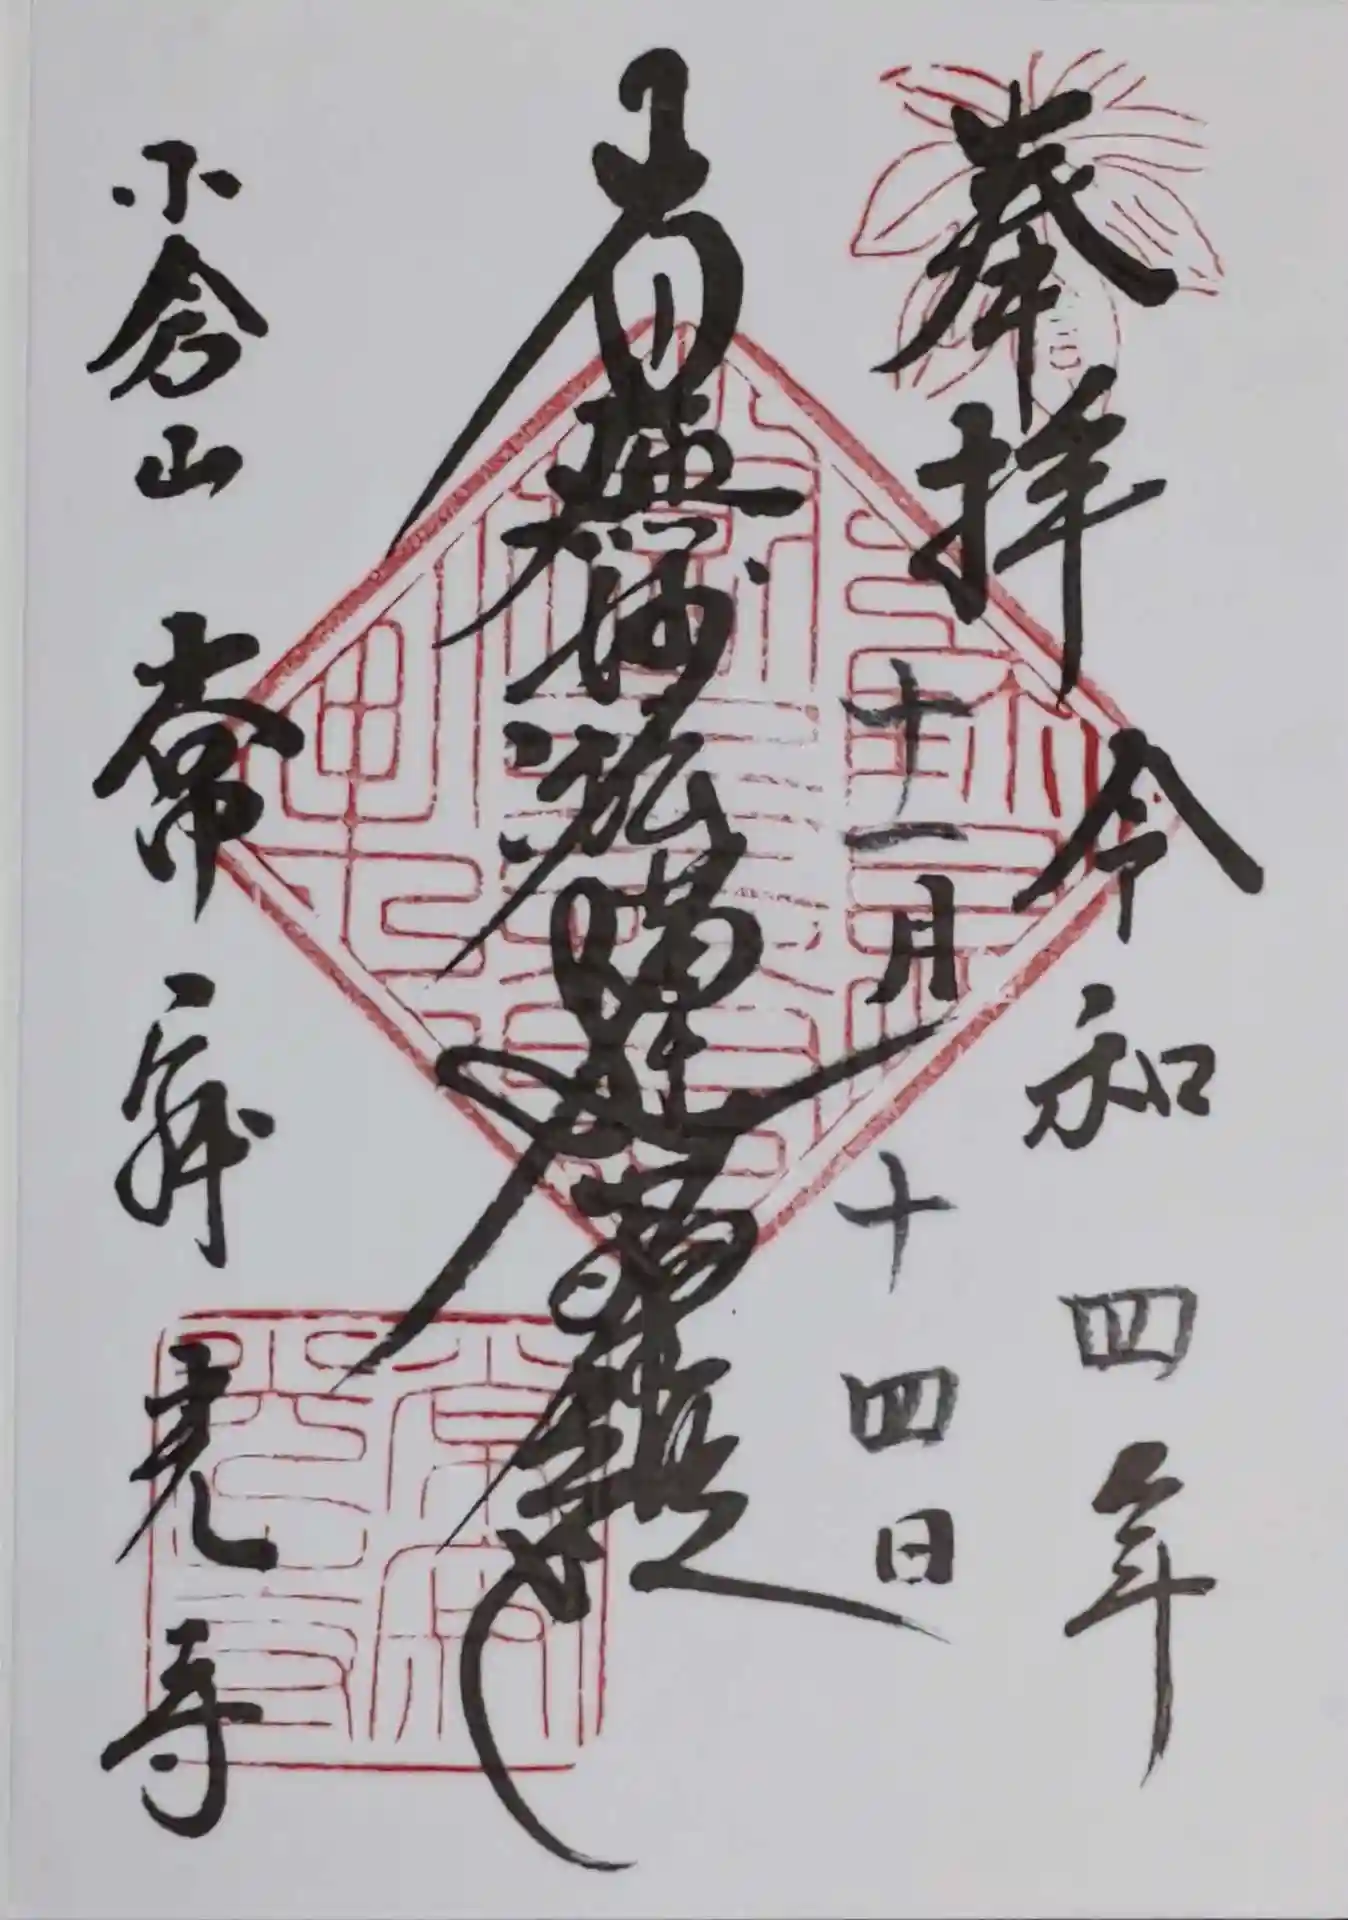 奉拝
令和四年
十一月十四日
南無妙法蓮華経
小倉山 常寂光寺